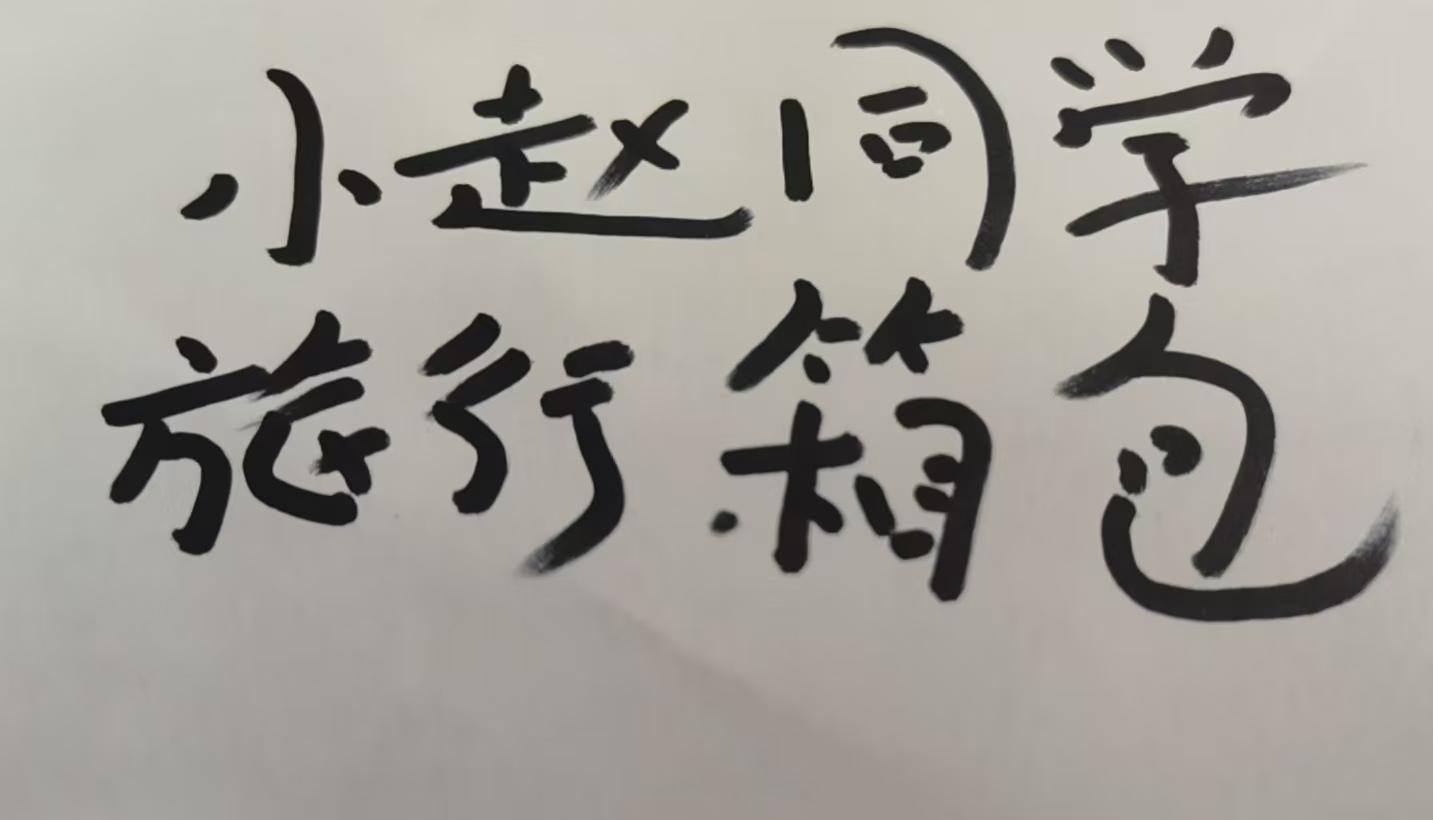 小赵同学
旅行箱包